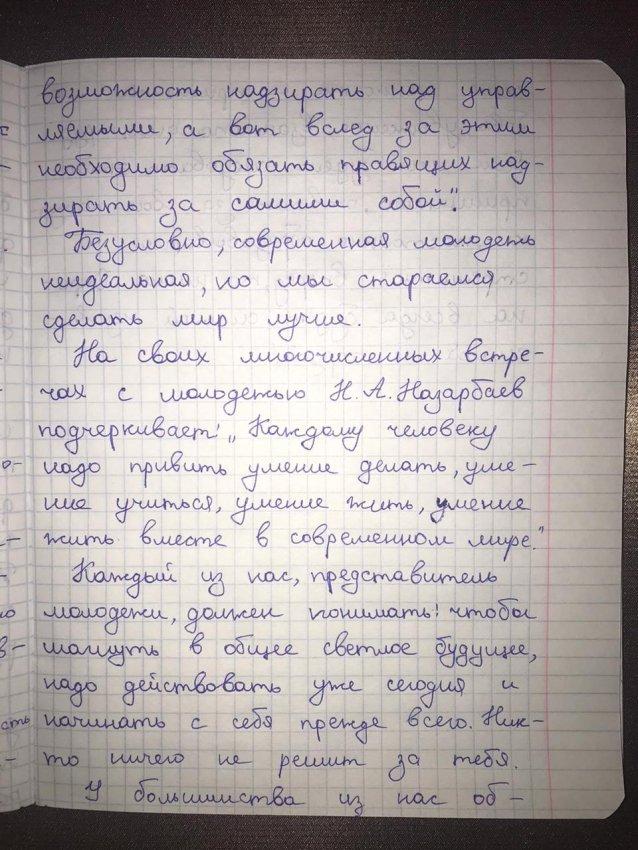 возможность надзирать над управ-
ляемыми, а вот вслед за этим
необходимо обязать правящих над-
зирать за самими собой".
Безусловно, современная молодежь
неидеальная, но мы стараемся
сделать мир лучше.
На своих многочисленных встре-
чах с молодежью Н.А.Назарбаев
подчеркивает: „Каждому человеку
надо привить умение делать, уме-
ние учиться, умение жить, умение
жить вместе в современном мире."
Каждый из нас, представитель
молодежи, должен понимать: чтобы
шагнуть в общее светлое будущее,
надо действовать уже сегодня и
начинать с себя прежде всего. Ник-
то ничего не решит за тебя.
У большинства из нас об-